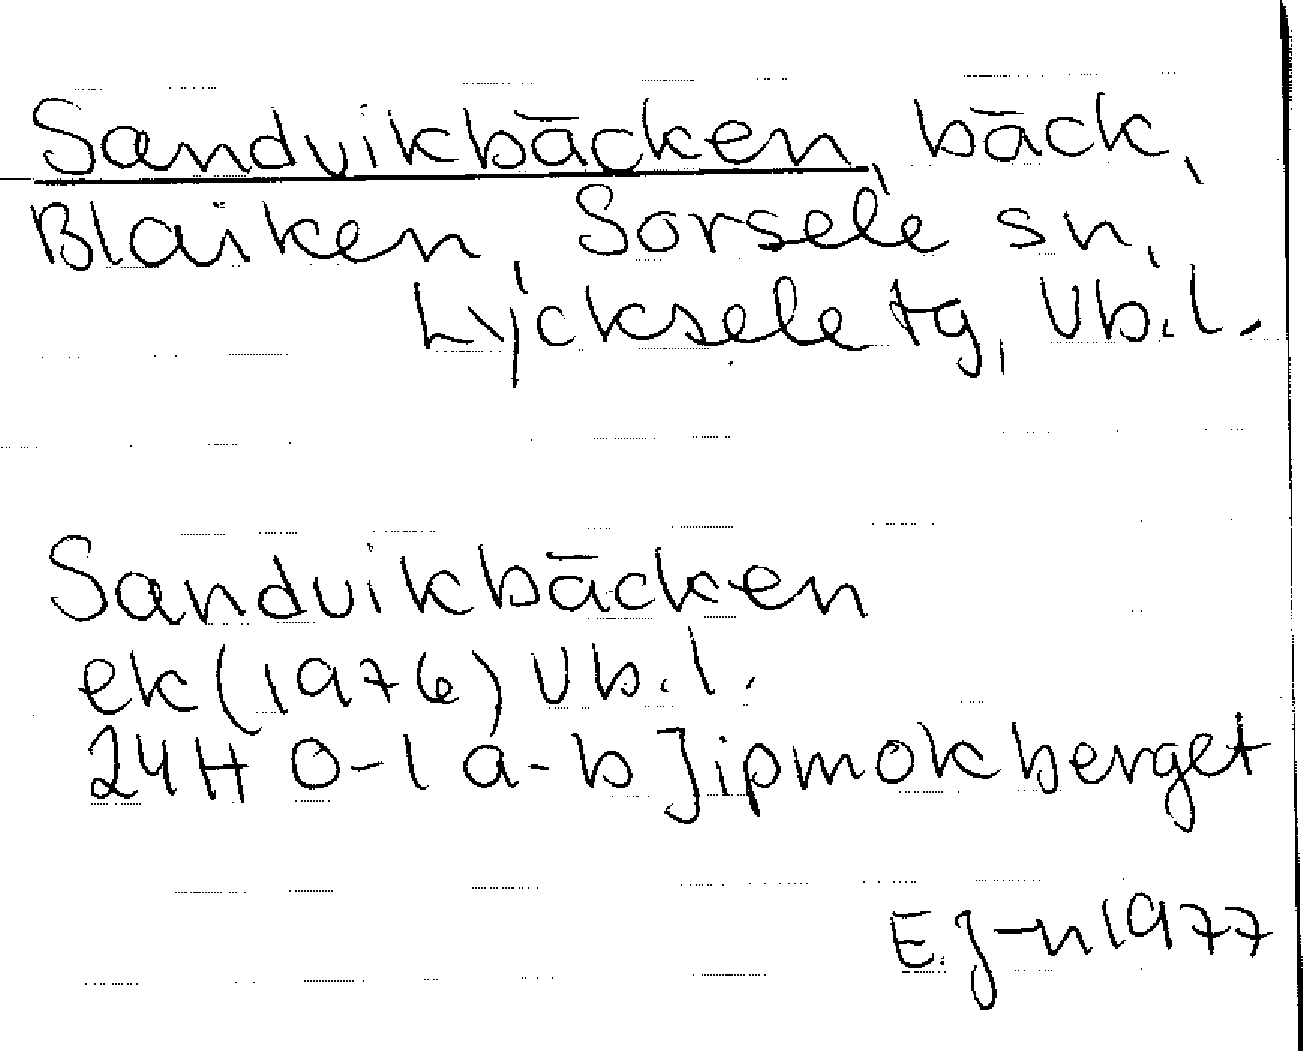 Sandvikbäcken, bäck,
Blaiken, Sorsele sn,
Lycksele tg, Vb.l.
Sandvikbäcken
ek (1976) Vb.l.
24H 0-1 a-b Jipmokberget
E.J-n 1977